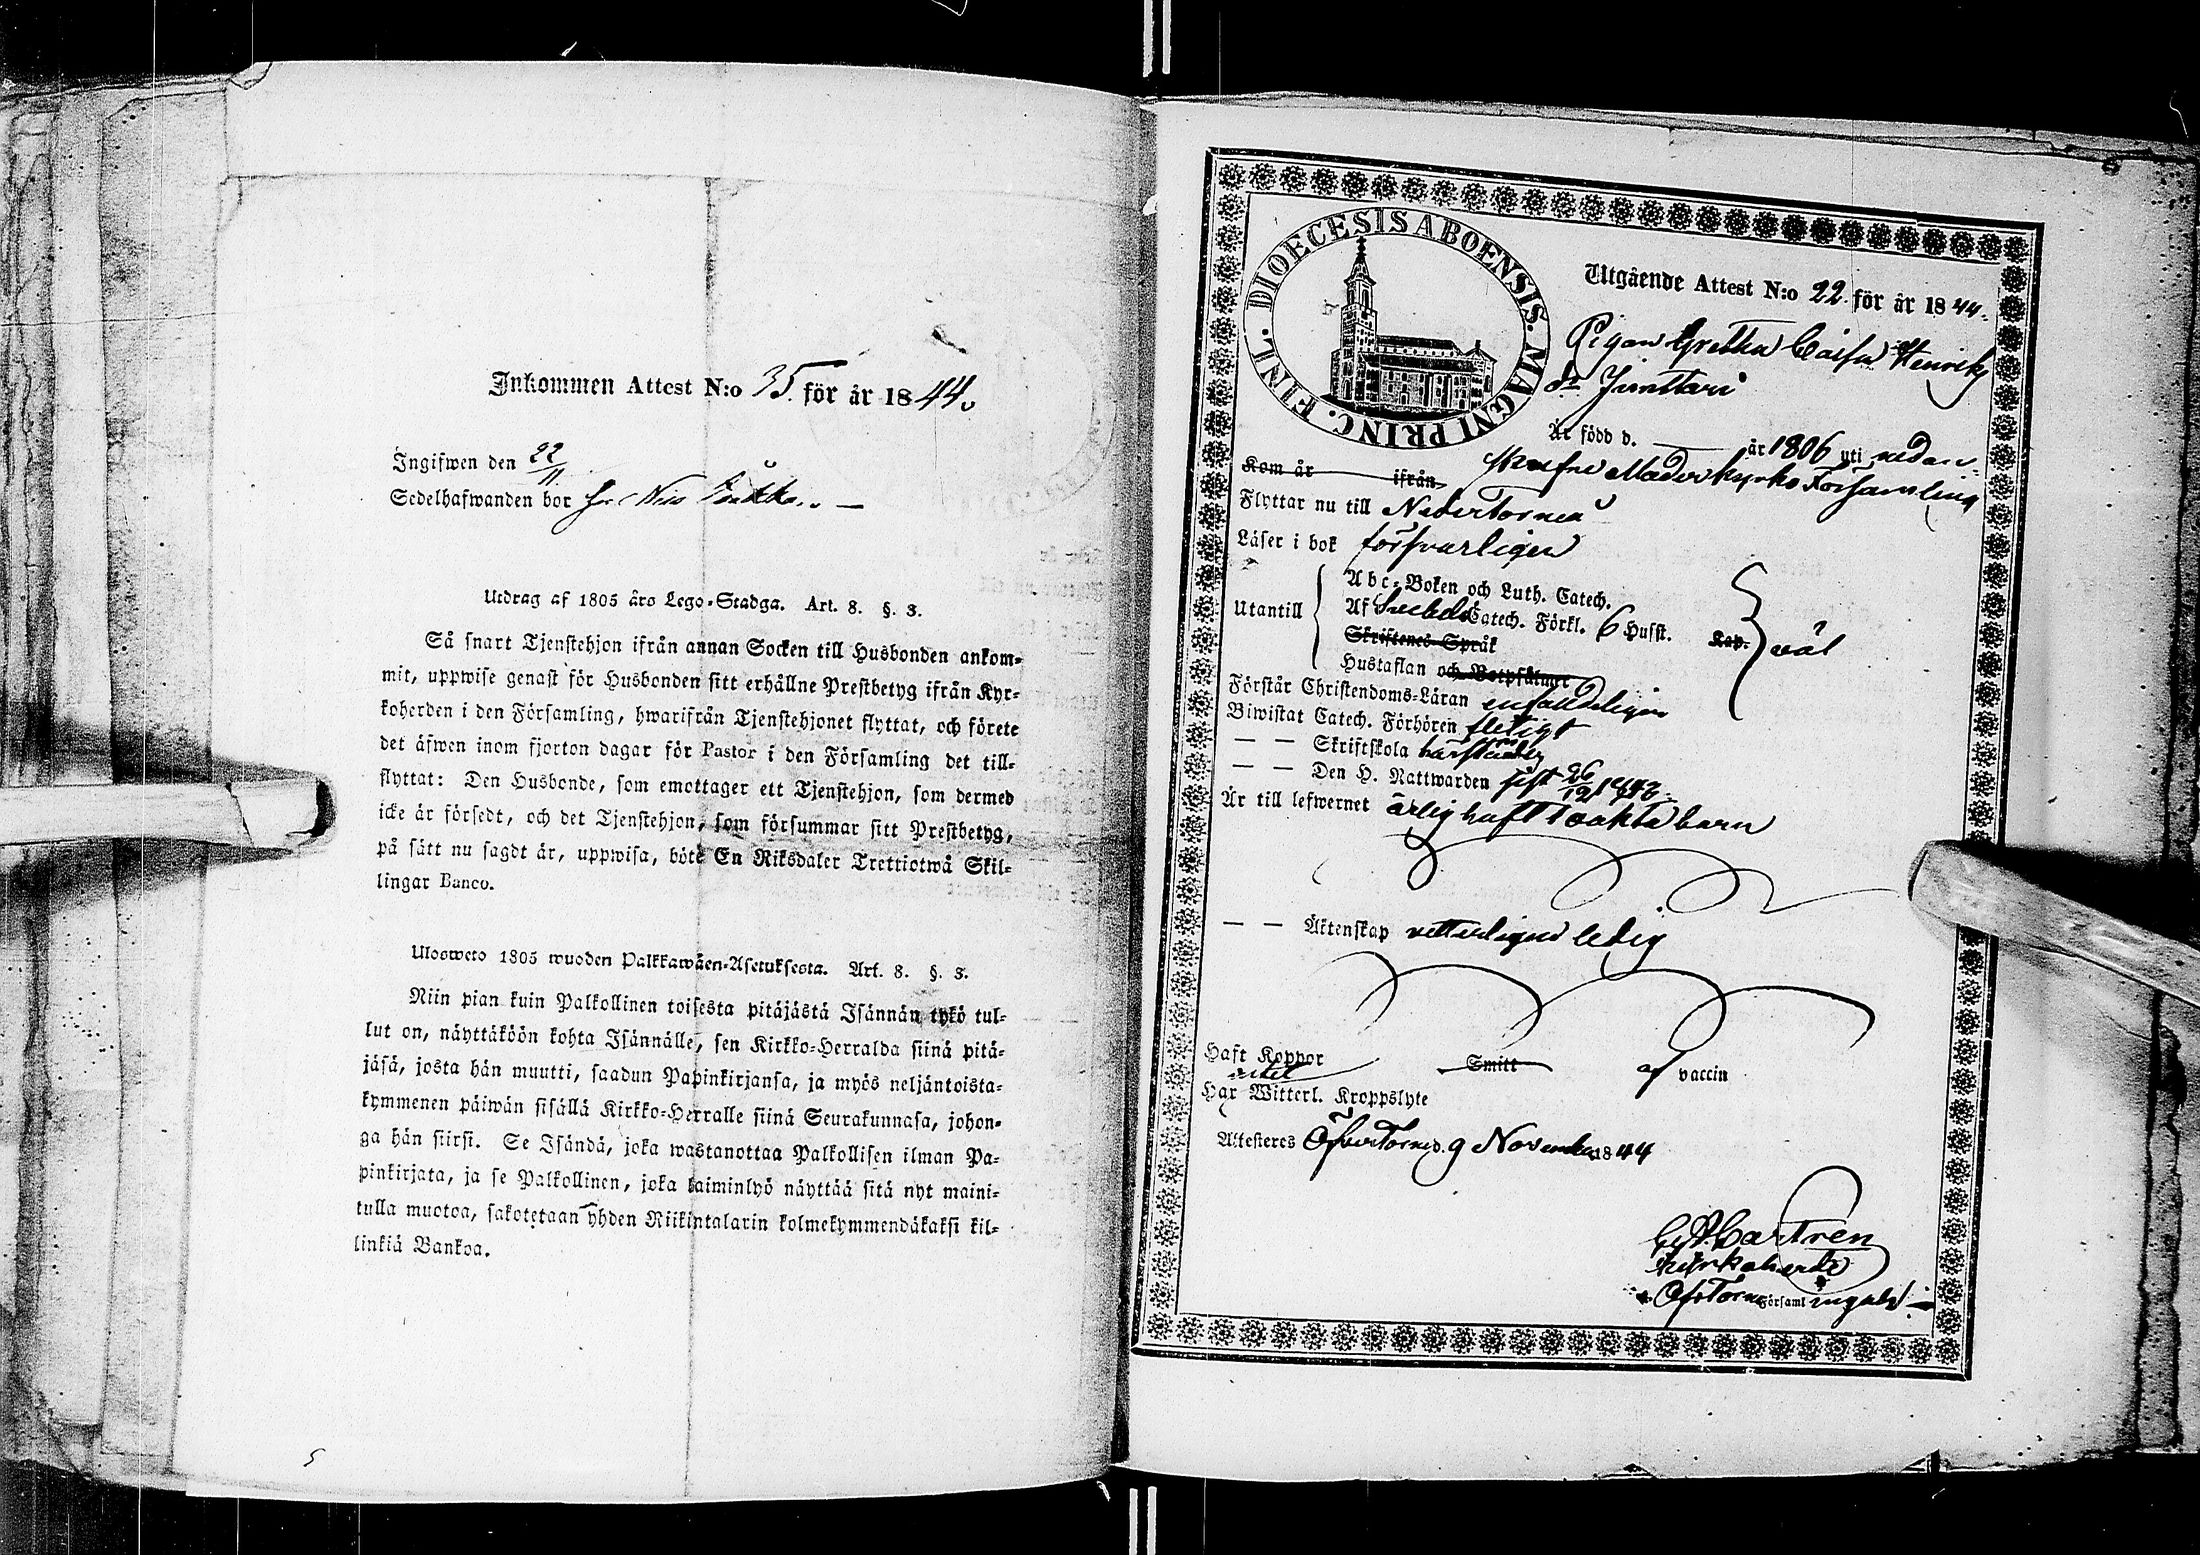 Inkommen Attest N:o 35. för år 1844.
Ingifwen den 22/11
Sedelhafwanden bor
Utdrag af 1805 års Lego-Stadga. Art. 8. §. 3.
Så snart Tjenstehjon ifrån annan Socken till Husbonden ankom-
mit, uppwise genast för Husbonden sitt erhållne Prestbetyg ifrån Kyr-
koherden i den Församling, hwarifrån Tjenstehjonet flyttat, och förete
det äfwen inom fjorton dagar för Pastor i den Församling det till-
flyttat: Den Husbonde, som emottager ett Tjenstehjon, som dermed
icke är försedt, och det Tjenstehjon, som försummar sitt Prestbetyg,
på sätt nu sagdt är, uppwisa, böte En Riksdaler Trettiotwå Skil-
lingar Banco.
Ulosweto 1805 wuoden Palkkawäen-Asetuksesta. Art. 8. §. 3.
Niin pian kuin Palkollinen toisesta pitäjästä Isännän tykö tul-
lut on, näyttäköön kohta Isännälle, sen Kirkko-Herralda siinä pitä-
jäsä, josta hän muutti, saadun Papinkirjansa, ja myös neljäntoista-
kymmenen päiwän sisällä Kirkko-Herralle siinä Seurakunnasa, johon-
ga hän siirsi. Se Isändä, joka wastanottaa Palkollisen ilman Pa-
pinkirjata, ja se Palkollinen, joka laiminlyö näyttää sitä nyt maini-
tulla muotoa, sakotetaan yhden Riikintalarin kolmekymmendäkaksi kil-
linkiä Bankoa.
DIOECESIS ABOENSIS. MAGNI PRINC. FINL.
Utgående Attest N:o 22. för år 1844.
Pigan Gretha Caisa Henriks
dr
Är född d. — år 1806 uti nedan-
skrefne Moderkyrko Församling
Kom år ifrån
Flyttar nu till NederTorneå
Läser i bok försvarligen
Utantill
Abc-Boken och Luth. Catech.
Af Svebelii Catech. Förkl. 6 Husst. Kap. väl
Skriftenes Språk
Hustaflan och Botpsalmer
Förstår Christendoms-Läran enfaldeligen
Biwistat Catech. Förhören flitigt
— — Skriftskola
— — Den H. Nattwarden sist 26/12 1843.
Är till lefwernet ärlig haft 1 oäkta barn
— — Äktenskap vetterligen ledig
Haft Koppor Smitt af vaccin
Har Witterl. Kroppslyte intet
Attesteres ÖfverTorneå d. 9 November 1844
Castrén
Kyrkoherde
ÖfrTorneå Församlingar.